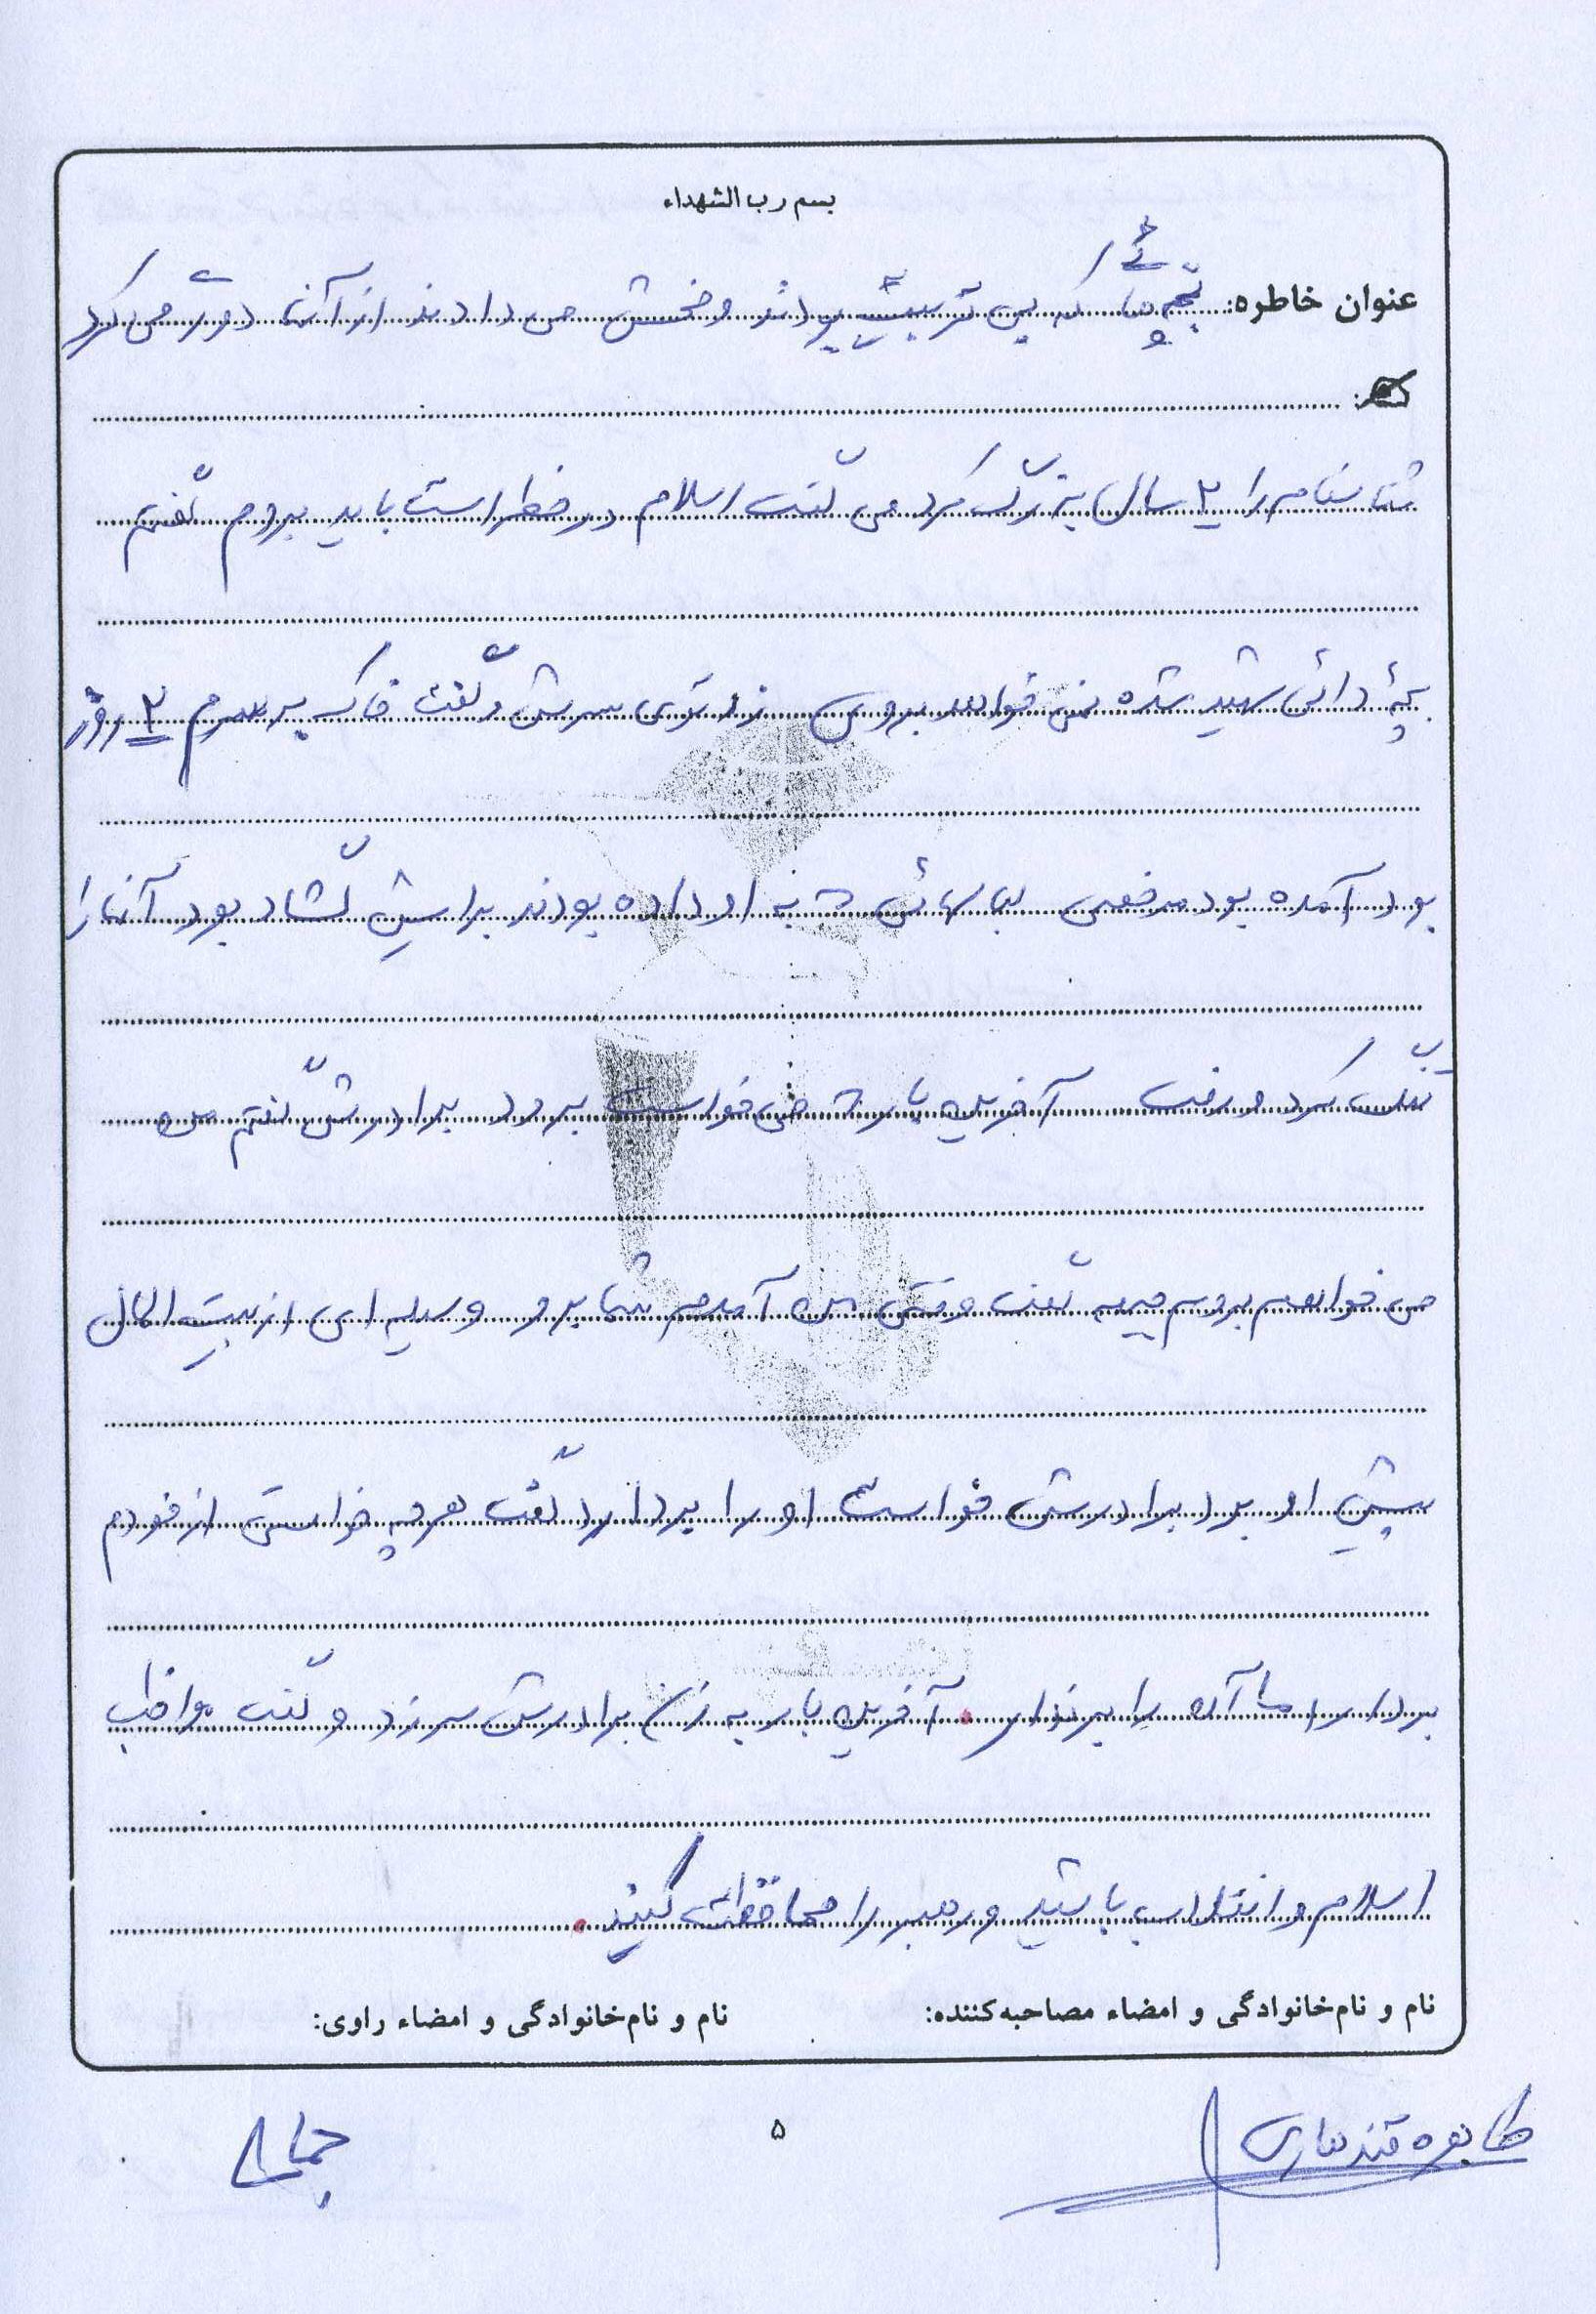 بسم رب الشهداء
عنوان خاطره: بچه هائی که بی تربیت بودند و فحش می دادند از آنها دوری می کرد
شناسنامه را ۲ سال بزرگ کرد می گفت اسلام در خطر است باید بروم گفتم
بچهٔ دائی شهید شده نمی خواهد بروی زد توی سرش و گفت خاک به سرم ۲ روز
بود آمده بود مرخصی لباسهائی که به او داده بودند برایش گشاد بود آنها را
تنگ کرد و رفت آخرین باری که می خواست برود برادرش گفتم من
می خواهم بروم جبهه گفت وقتی من آمدم شما برو وسیله ای از بیت المال
پیش او بود برادرش خواست او را بردارد گفت هر چه خواستی از خودم
بردار اما آن را برندار. آخرین بار به زن برادرش سر زد و گفت مواظب
اسلام و انقلاب باشید و رهبر را محافظت کنید.
نام و نام‌خانوادگی و امضاء مصاحبه‌کننده:
نام و نام‌خانوادگی و امضاء راوی:
طاهره قندهاری
جمالی
۵